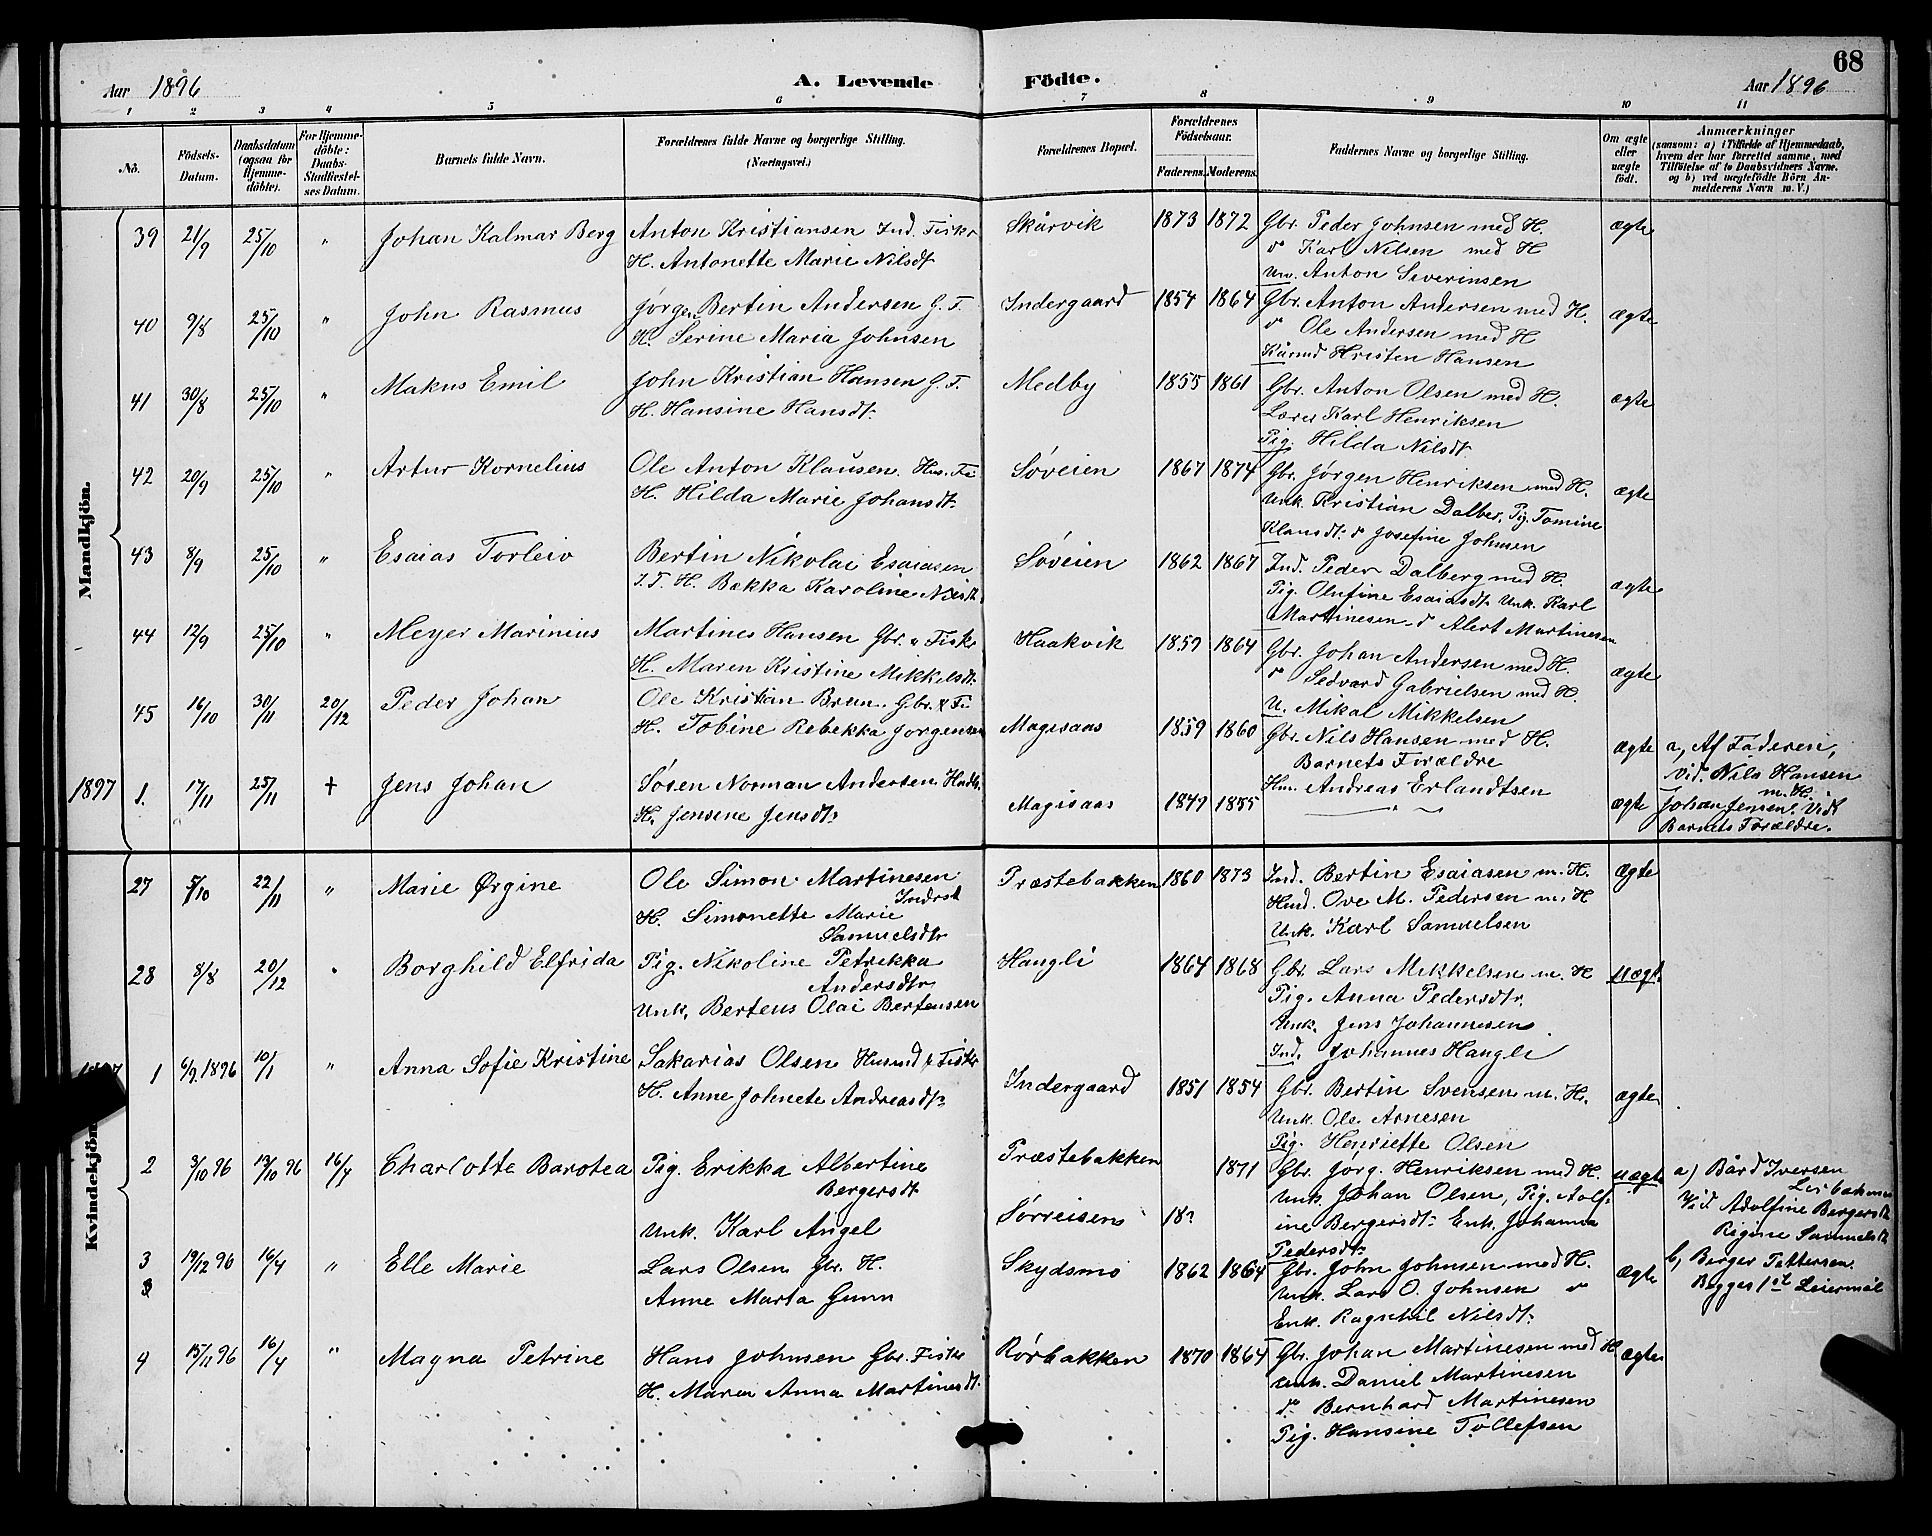 68
Aar 1896 A. Levende Födte. Aar 1896
1 2 3 4 5 6 7 8 9 10 11
No. Födsels-Datum. Daabsdatum (ogsaa for Hjemme-döbte). For Hjemme-döbte: Daabs-Stadfæstel-ses Datum. Barnets fulde Navn. Forældrenes fulde Navne og borgerlige Stilling. (Næringsvei.) Forældrenes Bopæl. Forældrenes Födselsaar. Faderens. Moderens. Faddernes Navne og borgerlige Stilling. Om ægte eller uægte födt. Anmærkninger (saasom: a) i Tilfælde af Hjemmedaab, hvem der har forrettet samme, med Tilföielse af to Daabsvidners Navne, og b) ved uægtefödte Börn An-melderens Navn m. V.)
Mandkjön.
39 21/9 25/10 " Johan Kalmar Berg Anton Kristiansen Ind. Fisker Skårvik 1873 1872 Gbr. Peder Johnsen med H. ægte
H. Antonette Marie Nilsdt. do Karl Nilsen med H
Um. Anton Severinsen
40 9/8 25/10 " John Rasmus Jørgen Bertin Andersen G. F. Indergaard 1854 1864 Gbr. Anton Andersen med H. ægte
H. Serine Maria Johnsen do Ole Andersen med H
Kårmd Kristen Hansen
41 30/8 25/10 " Makus Emil John Kristian Hansen G. F. Medby 1855 1861 Gbr. Anton Olsen med H. ægte
H. Hansine Hansdt. Lærer Karl Henriksen
Pig. Hilda Nilsdt
42 20/9 25/10 " Artur Kornelius Ole Anton Klausen Hus. Fi Søveien 1867 1874 Gbr. Jørgen Henriksen med H. ægte
H. Hilda Marie Johansdt. Unk. Kristian Dalber, Pig. Tomine
Klausdt. do Josefine Johnsen
43 8/9 25/10 " Esaias Torleiv Bertin Nikolai Esaiasen Søveien 1862 1867 Ind. Peder Dalberg med H. ægte
I. F. H. Bekka Karoline Nilsdt Pig. Olufine Esaiasdt. Unk. Karl
Martinesen do Alert Martinesen
44 12/9 25/10 " Meyer Marinius Martines Hansen Gbr. & Fisk. Haakvik 1859 1864 Gbr. Johan Andersen med H. ægte
H. Maren Kristine Mikkelsdt. do Sedvard Gabrielsen med H.
U. Mikal Mikkelsen
45 16/10 30/11 20/12 Peder Johan Ole Kristian Brun. Gbr. & Fi Magisaas 1859 1860 Gbr. Nils Hansen med H. ægte a, Af Faderen,
H. Tobine Rebekka Jørgensen Barnets Forældre Vid. Nils Hansen
Hus. Andreas Erlandtsen m. H.
1897 1. 17/11 25/11 + Jens Johan Søren Norman Andersen Husm. Magisaas 1849 1855 " ægte Johan Jensen. Vidt
H. Jensine Jensdt. Barnets Forældre.
Kvindekjön.
27 5/10 22/11 " Marie Ørgine Ole Simon Martinesen Præstebakken 1860 1873 Ind. Bertin Esaiasen m. H. ægte
Indrst
H. Simonette Marie Husd. Ove M. Pedersen m. H
Samuelsdtr Unk. Karl Samuelsen
28 8/8 20/12 " Borghild Elfrida Pig. Nikoline Petrikka Hangli 1864 1868 Gbr. Lars Mikkelsen m. H uægt
Andersdtr Pig. Anna Pedersdtr.
Unk. Berteus Olai Bertensen Unk. Jens Johannesen
Ind. Johannes Hangli
1 6/9. 1896 10/1 " Anna Sofie Kristine Sakarias Olsen Husmd & Fisker Indergaard 1851 1854 Gbr. Bertin Svensen m. H. ægte
H. Anne Johnete Andreasdtr. Unk. Ole Arnesen
Pig. Henriette Olsen
2 3/10 96 13/10 96 16/4 Charlotte Barotea Pig. Erikka Albertine Præstebakken 1871 Gbr. Jørg. Henriksen med H. uægte a) Bård Iversen
Bergersdt Unk Johan Olsen, Pig. Adolf-
Unk. Karl Angel Sørreisen 18? ine Bergersdt. Enk. Johanna Vid. Adolfine Bergersdt
Pedersdt. Rigine Samuelsdt
3 19/12 96 16/4 " Elle Marie Lars Olsen Gbr. H. Skydsmo 1862 1864 Gbr. John Johnsen med H. ægte b, Berger Pettersen.
Anne Marta Gunn Unk. Lars O. Johnsen do Begges 1st Leiermål
Enk. Ragnhil Nilsdt.
4 15/11 96 16/4 " Magna Petrine Hans Johnsen Gbr. Fisker Rørbakken 1870 1864 Gbr. Johan Martinesen med H ægte
H. Maren Anna Martinesdt. Unk. Daniel Martinesen
do Bernhard Martinesen
Pig. Hansine Tollefsen